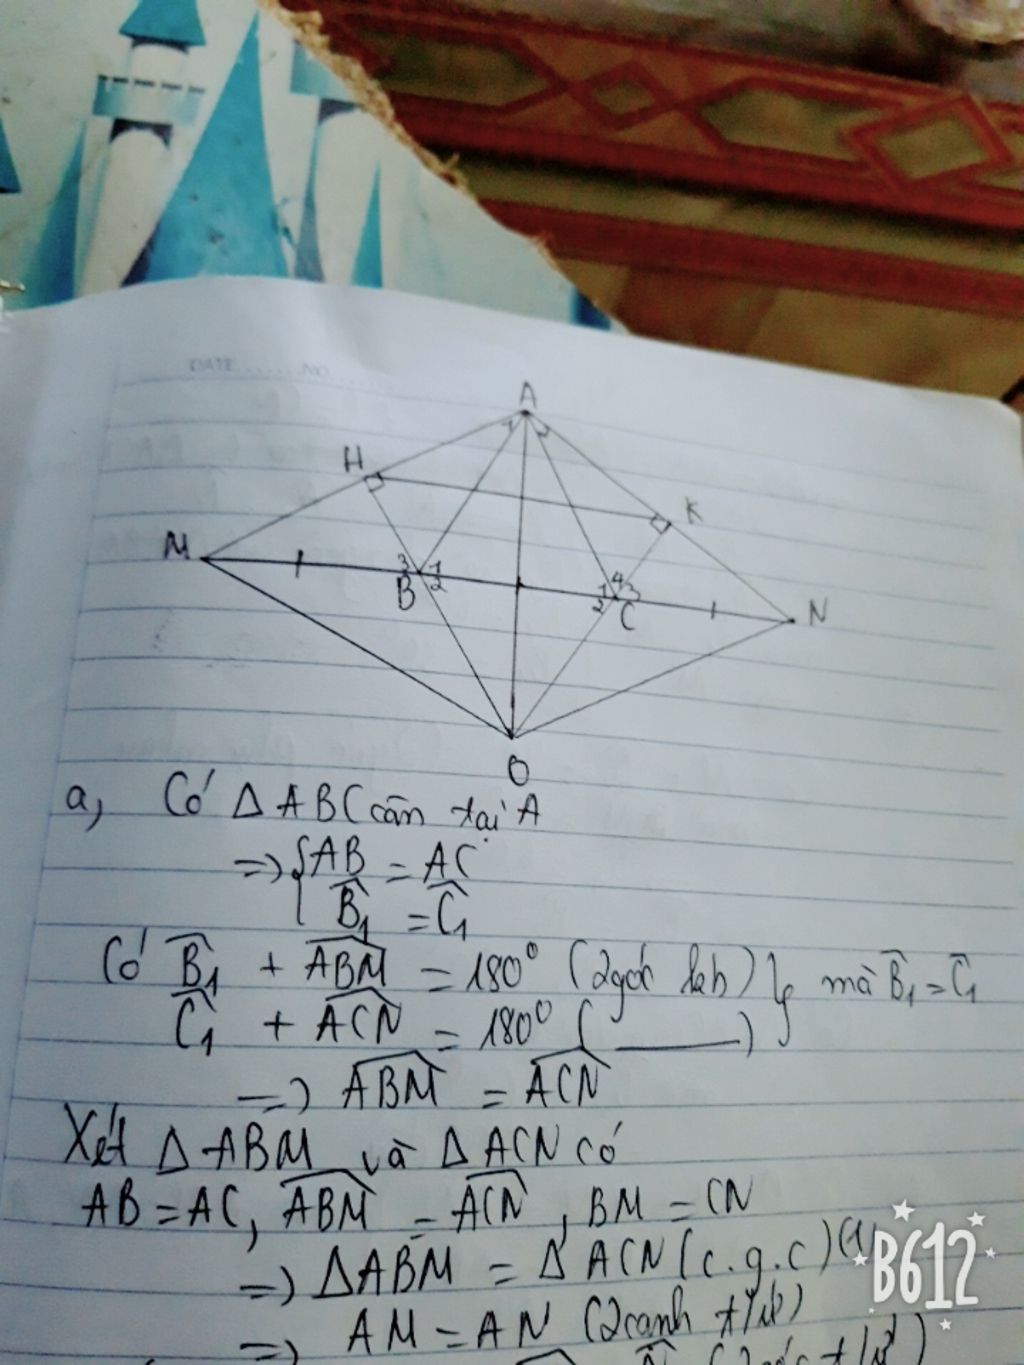 DATE ........ NO ........
A
H
K
M
B
C
N
O
1 2
3 1 2
1 2 4 3
a, Có Δ ABC cân tại A
=> { AB = AC
B̂₁ = Ĉ₁
Có B̂₁ + ABM̂ = 180° (2góc kb) } mà B̂₁ = Ĉ₁
Ĉ₁ + ACN̂ = 180° ( ____ )
=> ABM̂ = ACN̂
Xét Δ ABM và Δ ACN có
AB = AC, ABM̂ = ACN̂, BM = CN
=> ΔABM = Δ ACN (c.g.c) (1)
=> AM = AN (2cạnh t/ứ)
B612